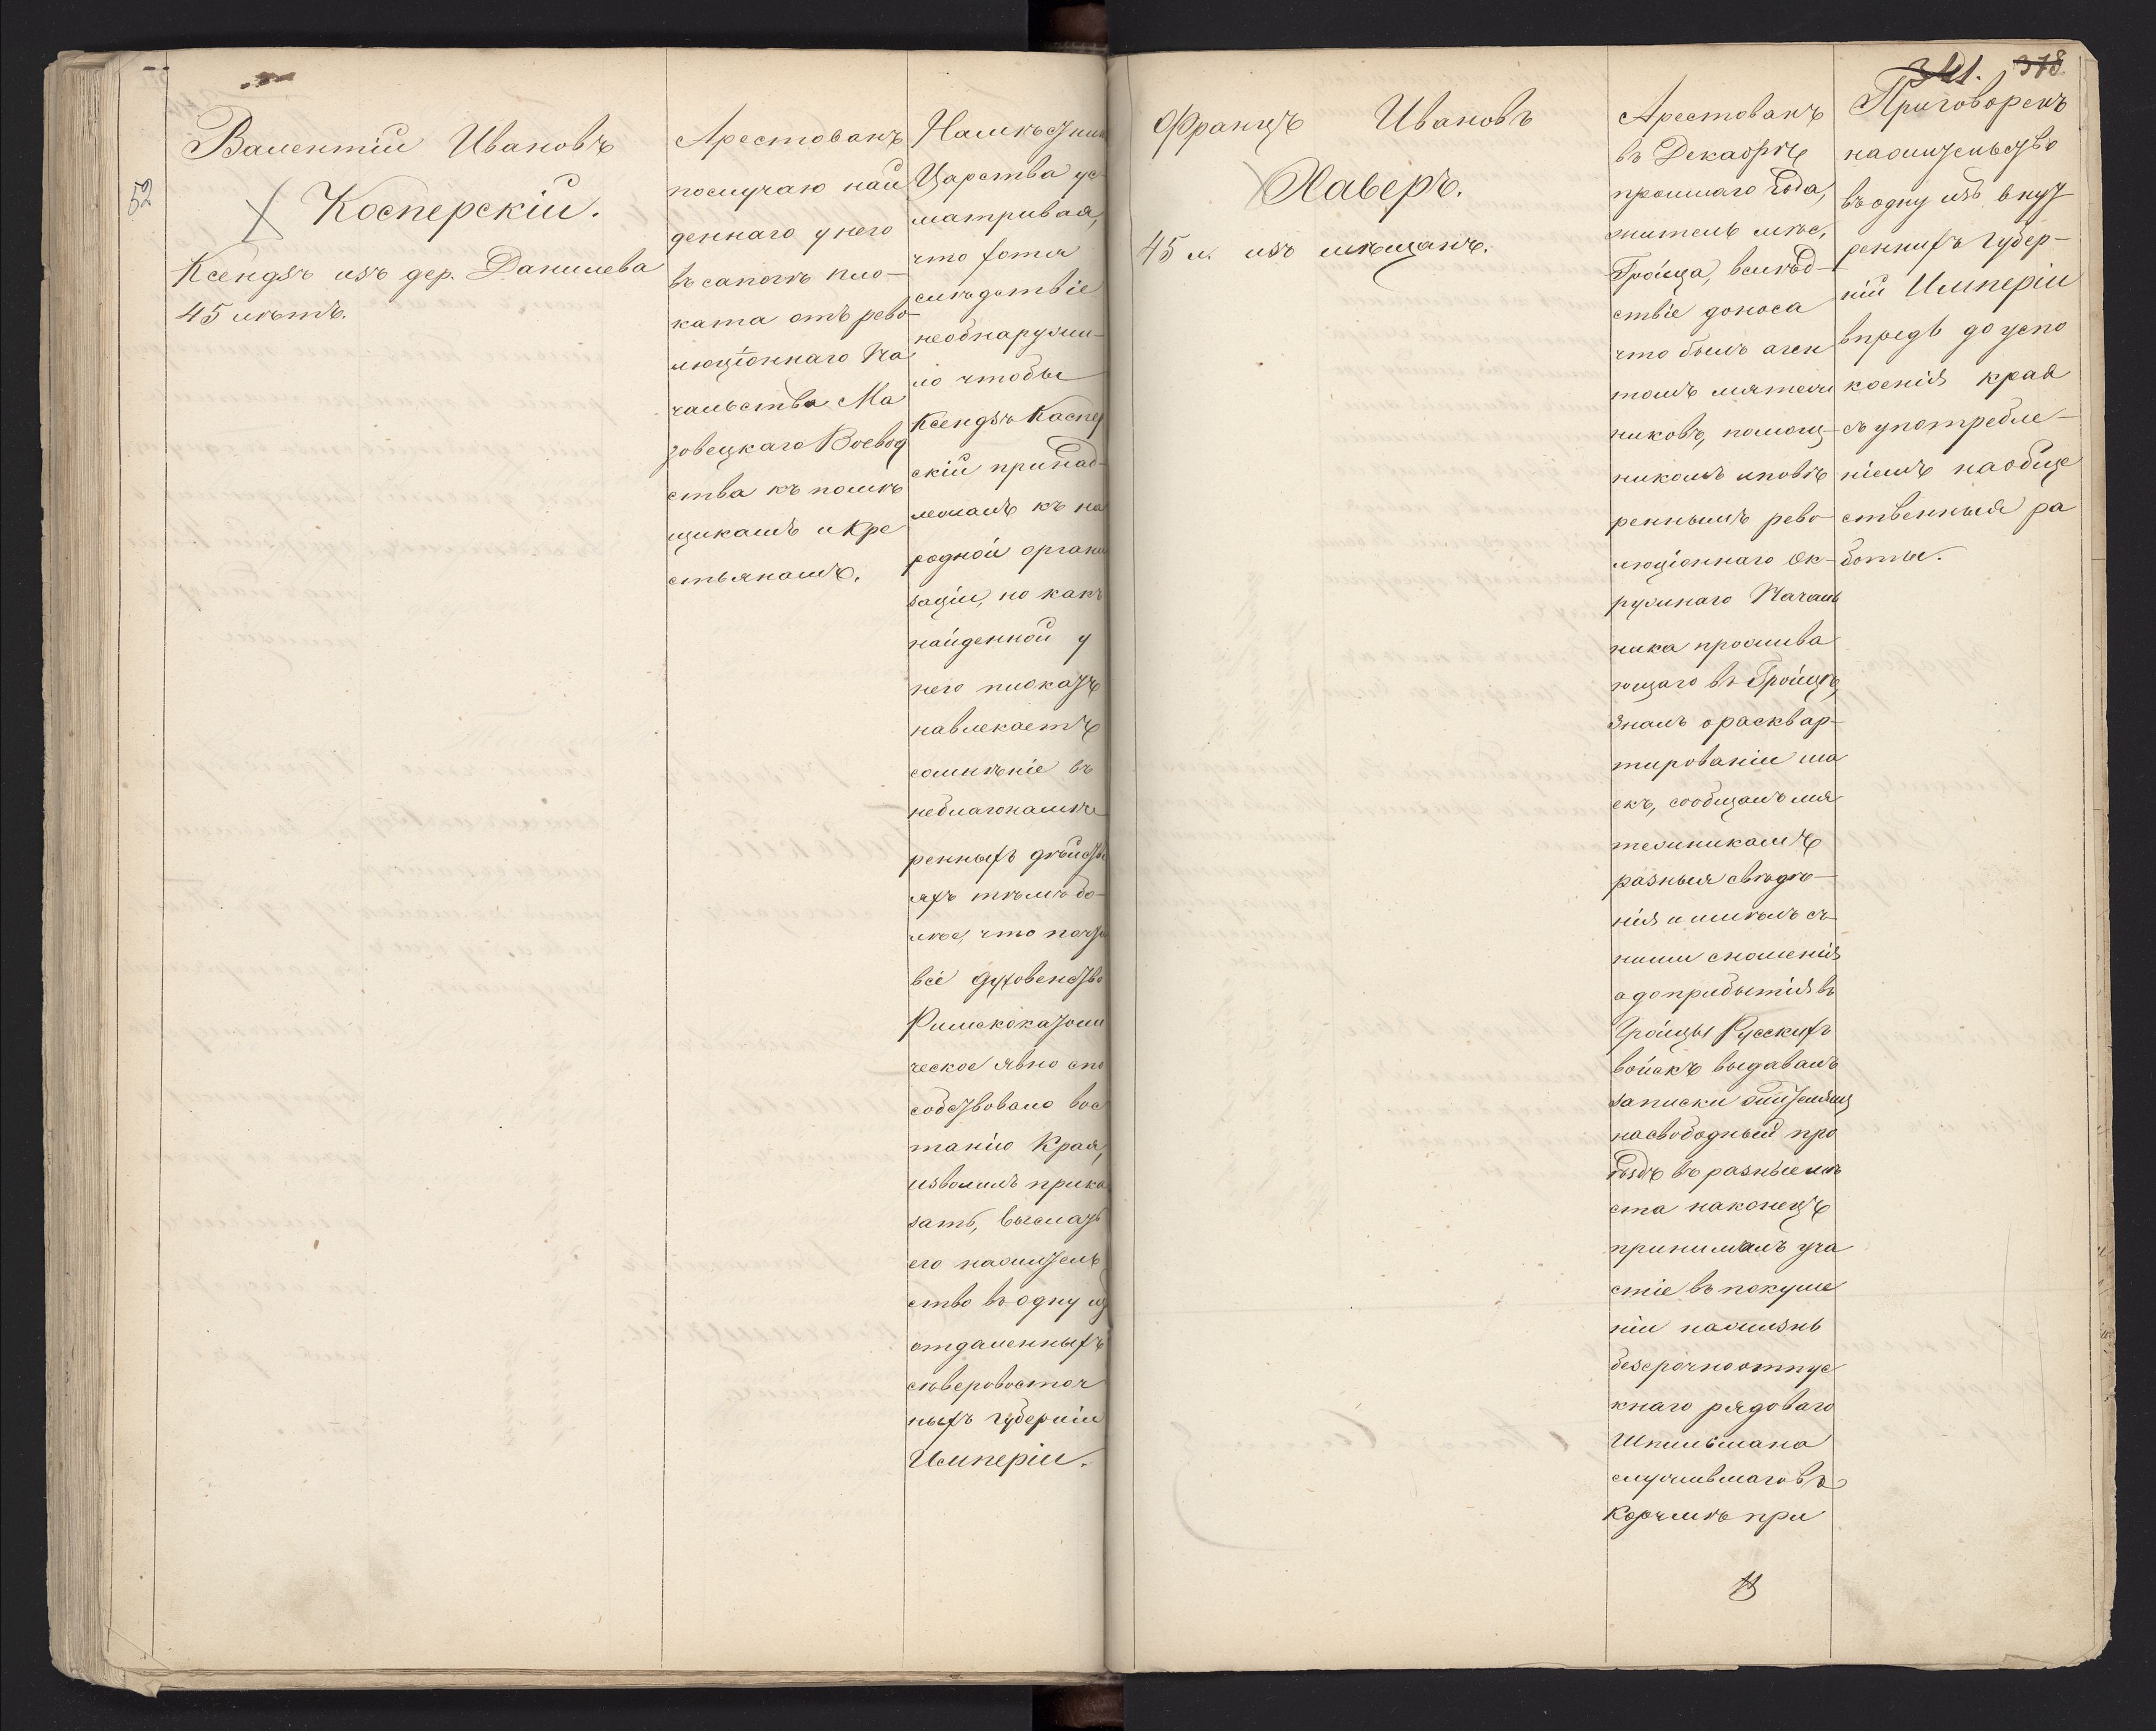 52
Валентій Ивановъ
Косперскій.
Ксендзъ изъ дер. Данилева
45 лѣтъ.
Арестованъ
послучаю най
деннаго у него
въ сапогѣ пла-
ката отъ рево-
люціоннаго На
чальства Ма
зовецкаго Воевод
ства къ помѣ
щикамъ и Кре
стьянамъ.
Намѣстник
Царства ус-
матривая,
что хотя
слѣдствіе
необнаружи-
ло чтобы
Ксендзъ Каспер
скій принад-
лежалъ къ на
родной органи
заціи, но какъ
найденной у
него плокатъ
навлекаетъ
сомнѣніе въ
неблагонамѣ
ренныхъ дѣйстві
яхъ тѣмъ бо-
лѣе, что почти
всё духовенство
Римскокатоли
ческое явно спо
собствовало воз
танію Края,
изволилъ прика
зать, выслать
его нажитель
ство въ одну из
отдаленныхъ
сѣверовосточ
ныхъ губерній
Имперіи.
341. 378
Францъ Ивановъ
Хаберъ.
45 л. изъ мѣщанъ.
Арестованъ
въ Декабрѣ
прошлаго Года,
житель мѣс.
Гройца, вслѣд-
ствіе доноса
что былъ аген
томъ мятеж
никовъ, помощ-
никомъ и повѣ
реннымъ рево-
люціоннаго Ок-
ружнаго Началь
ника прожива
ющаго въ Гройцѣ,
Зналъ о расквар-
тированіи ша
екъ, сообщалъ мя
тежникамъ
разныя свѣдѣ-
нія и имѣлъ съ
ними сношенія
а до прибытія въ
Гройцы Русскихъ
войскъ выдавалъ
записки
насвободный про
ѣздъ въ разные мѣ
ста наконецъ
принималъ уча
стіе въ покуше
ніи нажизнь
безсрочноотпус
кнаго рядоваго
Шпильмана
служившаго въ
Корчмѣ при
Приговоренъ
нажительство
въ одну изъ внут
реннихъ Губер-
ній Имперіи
впредь до успо
коенія края
съ употребле-
ніемъ наобще
ственныя ра
боты.